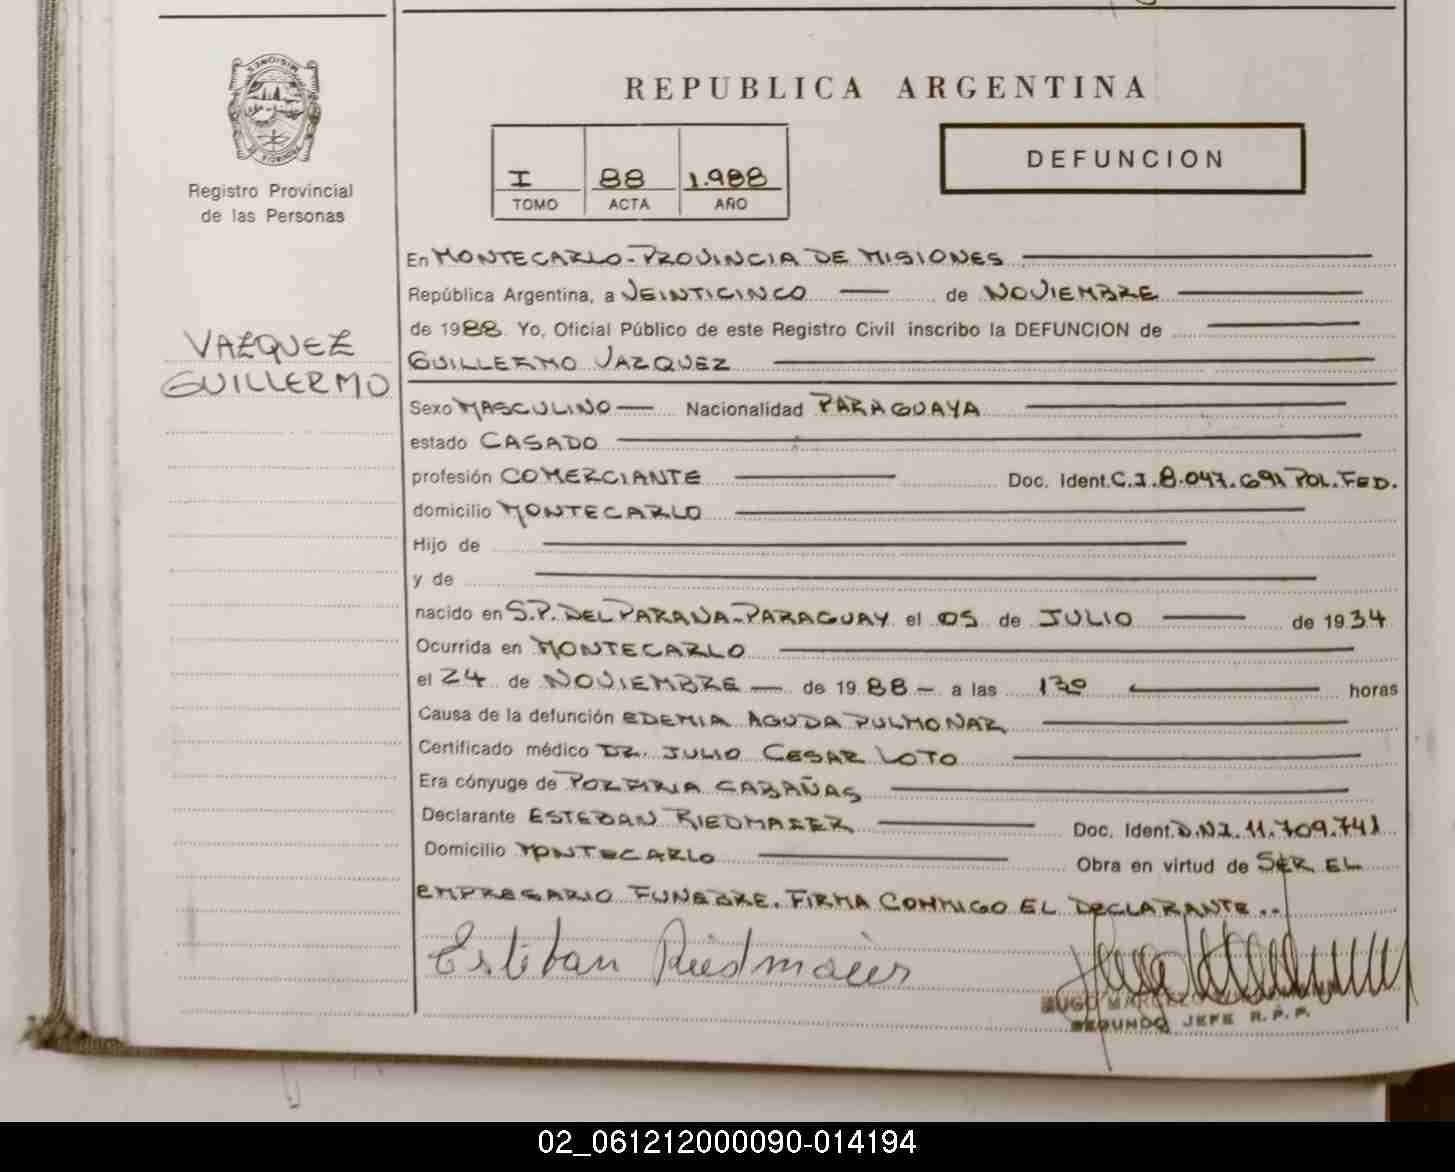 REPUBLICA ARGENTINA
I 88 1.988
TOMO ACTA AÑO
DEFUNCION
Registro Provincial
de las Personas
VAZQUEZ
GUILLERMO
En MONTECARLO-PROVINCIA DE MISIONES
República Argentina, a VEINTICINCO de NOVIEMBRE
de 1988 Yo, Oficial Público de este Registro Civil inscribo la DEFUNCION de
GUILLERMO VAZQUEZ
Sexo MASCULINO Nacionalidad PARAGUAYA
estado CASADO
profesión COMERCIANTE Doc. Ident. C.I. 8.047.691 POL. FED.
domicilio MONTECARLO
Hijo de
y de
nacido en S.P. DEL PARANA-PARAGUAY el 05 de JULIO de 1934
Ocurrida en MONTECARLO
el 24 de NOVIEMBRE de 1988 a las horas
Causa de la defunción EDEMIA AGUDA PULMONAR
Certificado médico DR. JULIO CESAR LOTO
Era cónyuge de PORFIRIA CABAÑAS
Declarante ESTEBAN RIEDMAIER Doc. Ident. D.N.I. 11.709.741
Domicilio MONTECARLO Obra en virtud de SER EL
EMPRESARIO FUNEBRE. FIRMA CONMIGO EL DECLARANTE..
Esteban Riedmaier
HUGO
SEGUNDO JEFE R.P.P.
02_061212000090-014194